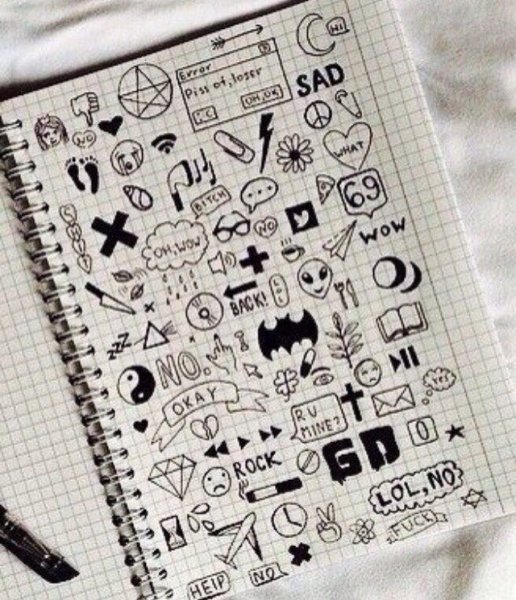 HI
Error
Piss of, loser
:C
OH, OK
SAD
NO
WHAT
BITCH
69
NO
WOW
OH, WOW
BACK!
zzz
NO.
OKAY
Yes
R U
MINE?
ROCK
GD
0
LOL, NO
FUCK
HELP
NO